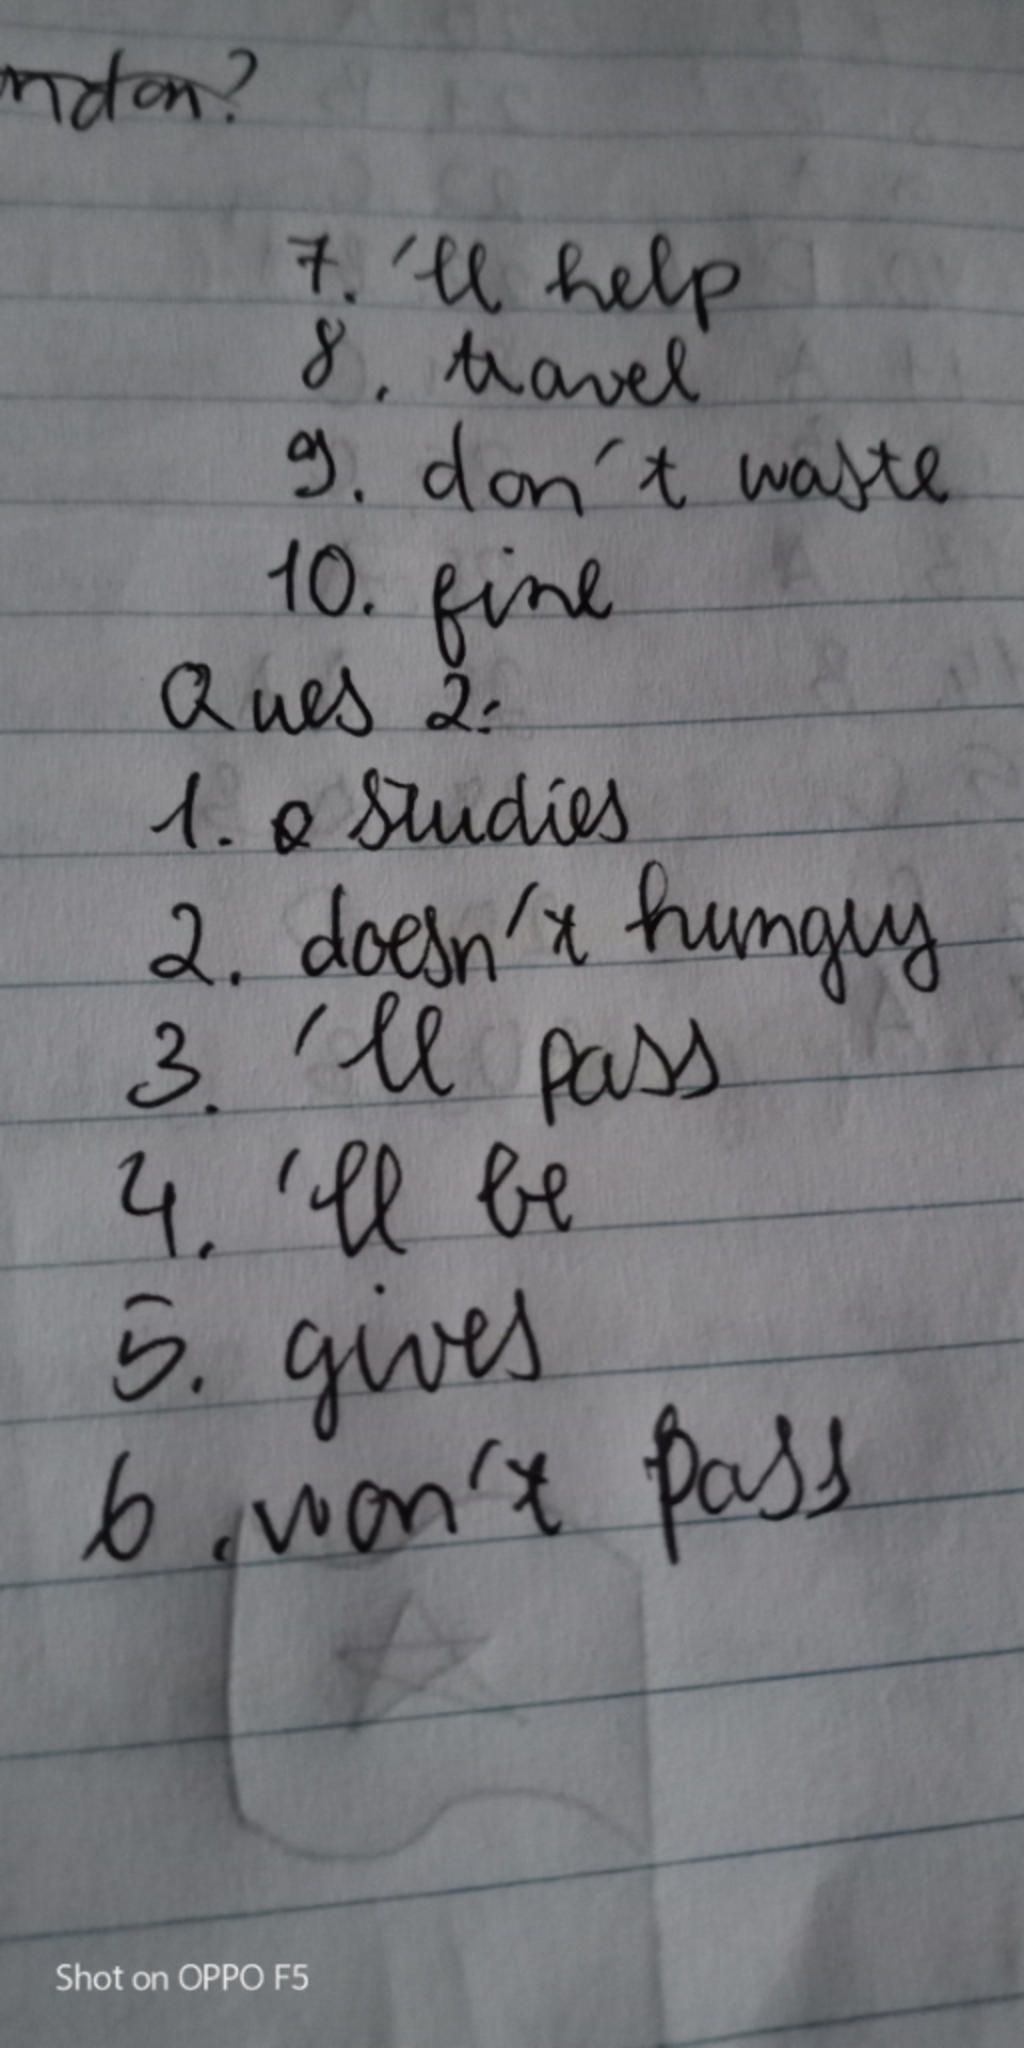 ndon?
7. 'll help
8. travel
9. don't waste
10. fine
Ques 2:
1. studies
2. doesn't hungry
3. 'll pass
4. 'll be
5. gives
6. won't pass
Shot on OPPO F5